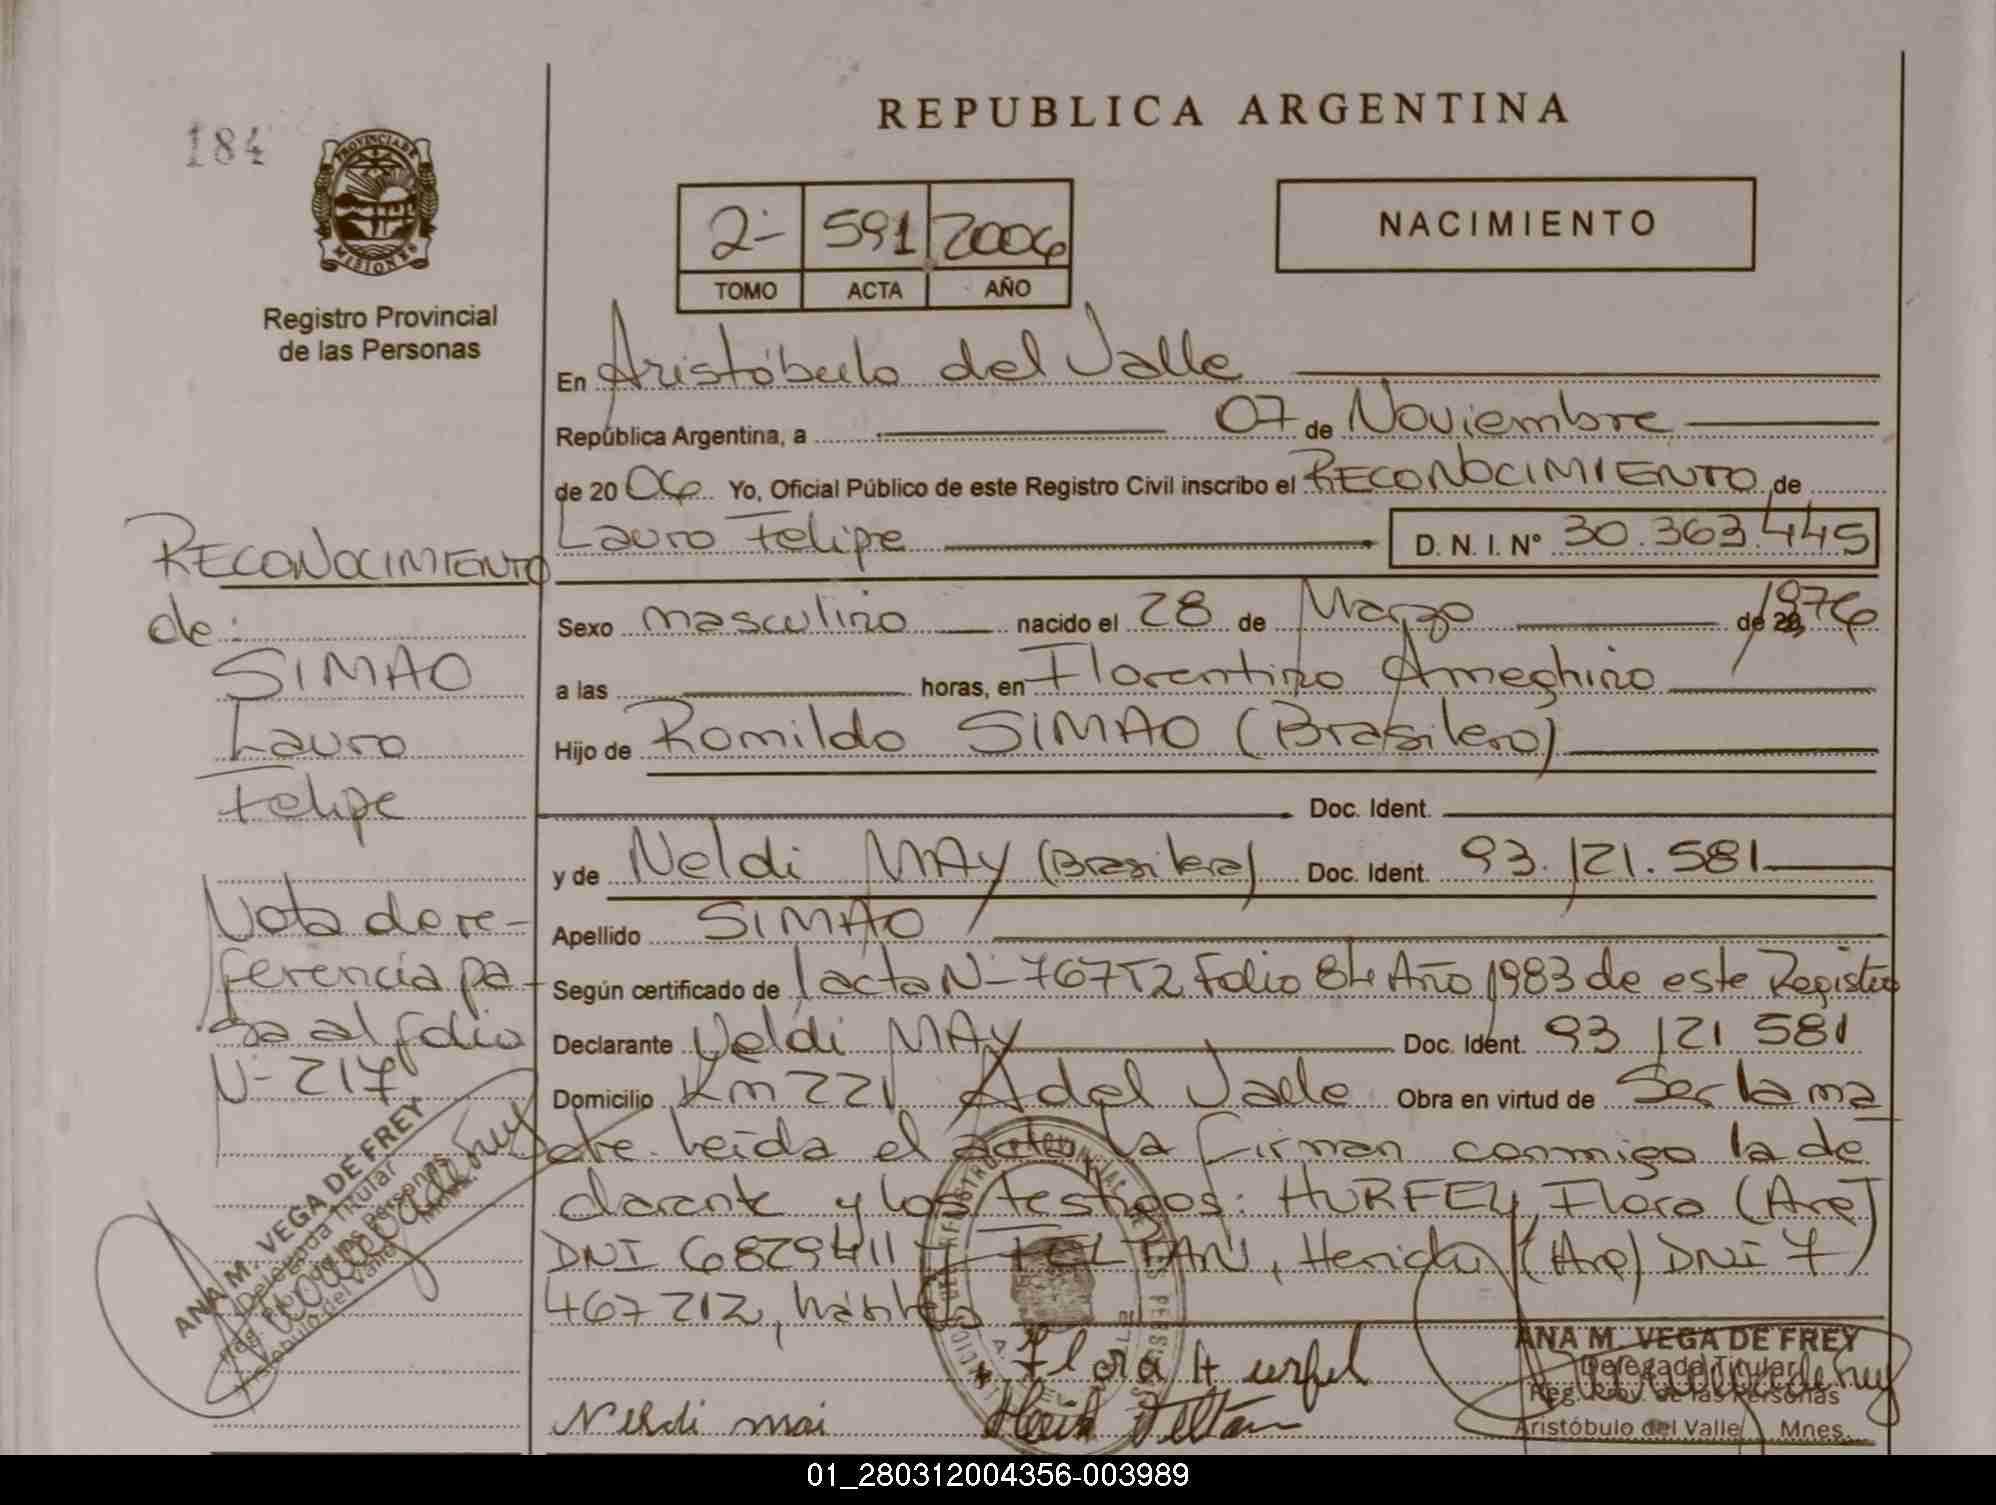 REPUBLICA ARGENTINA
184
PROVINCIA DE
MISIONES
Registro Provincial
de las Personas
2- 591 2006
TOMO ACTA AÑO
NACIMIENTO
En Aristóbulo del Valle
República Argentina, a 07 de Noviembre
de 20 06 Yo, Oficial Público de este Registro Civil inscribo el RECONOCIMIENTO de
Lauro Felipe D. N. I. Nº 30.363.445
Sexo masculino nacido el 28 de Marzo de 1976
a las horas, en Florentino Ameghino
Hijo de Romildo SIMAO (Brasilero)
Doc. Ident.
y de Neldi MAY (Brasilera) Doc. Ident. 93.121.581
Apellido SIMAO
Según certificado de acta N- 767 T2 Folio 84 Año 1983 de este Registro
Declarante Neldi MAY Doc. Ident. 93 121 581
Domicilio Km 221 A del Valle Obra en virtud de Ser la ma
dre. Leída el acta, la firman conmigo la de
clarante y los testigos: HURFEL, Flora (Arg)
DNI 6829411 y FELTAN, (Arg) DNI 7
467 212, hábiles
Flora Hurfel
Neldi mai
Feltan
RECONOCIMIENTO
de:
SIMAO
Lauro
Felipe
Nota de re-
ferencia pa-
sa al folio
N- 217
ANA M. VEGA DE FREY
Delegada Titular
Reg. Prov. de las Personas
Aristóbulo del Valle Mnes.
ANA M. VEGA DE FREY
Delegada Titular
Reg. Prov. de las Personas
Aristóbulo del Valle Mnes.
01_280312004356-003989